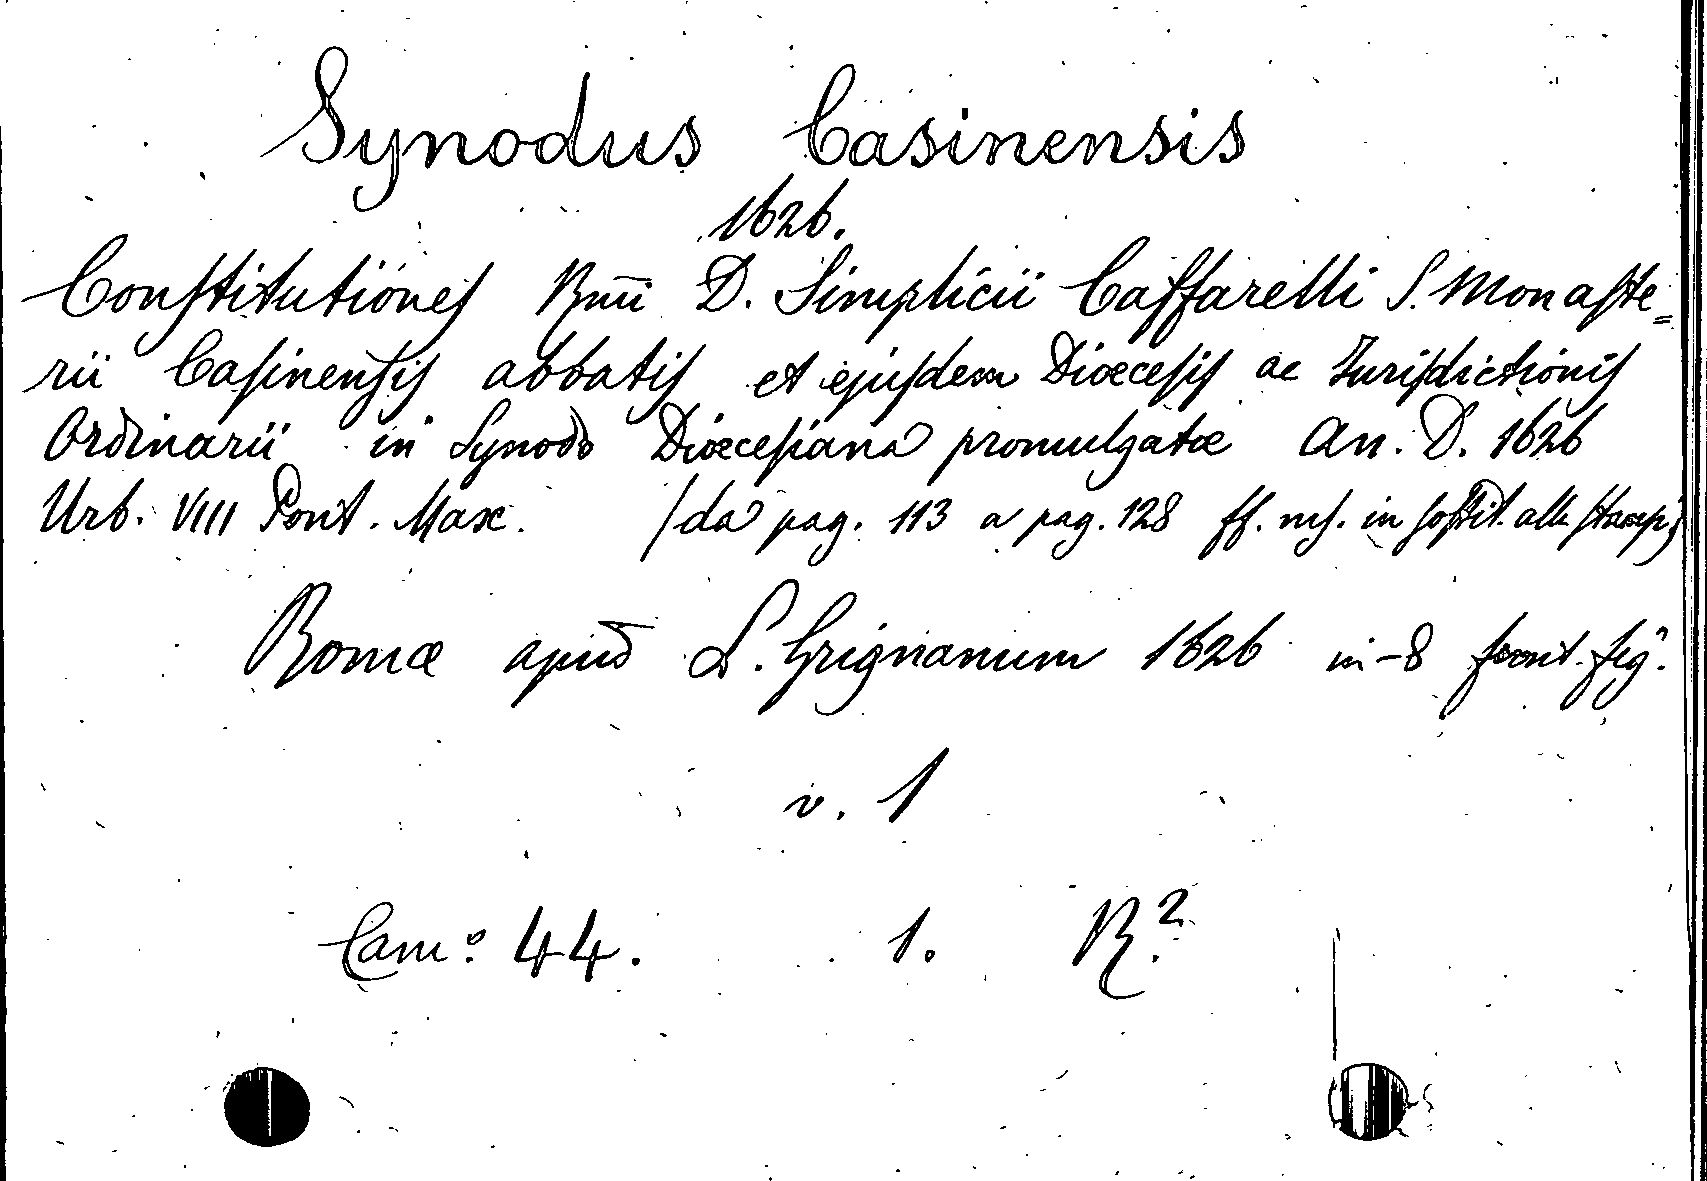 Synodus Casinensis
1626.
Constitutiones Rmi D. Simplicii Caffarelli S. Monaste=
rii Casinensis abbatis et ejusdem Diœcesis ac Jurisdictionis
Ordinarii in Synodo Diœcesiana promulgatæ An. D. 1626
Urb. VIII Pont. Max. (da pag. 113 a pag. 128 ff. ms. in sostit. alle stamp.)
Romæ apud L. Grignanum 1626 in-8 front. fig.
v. 1
Cam.º 44. 1. R.2